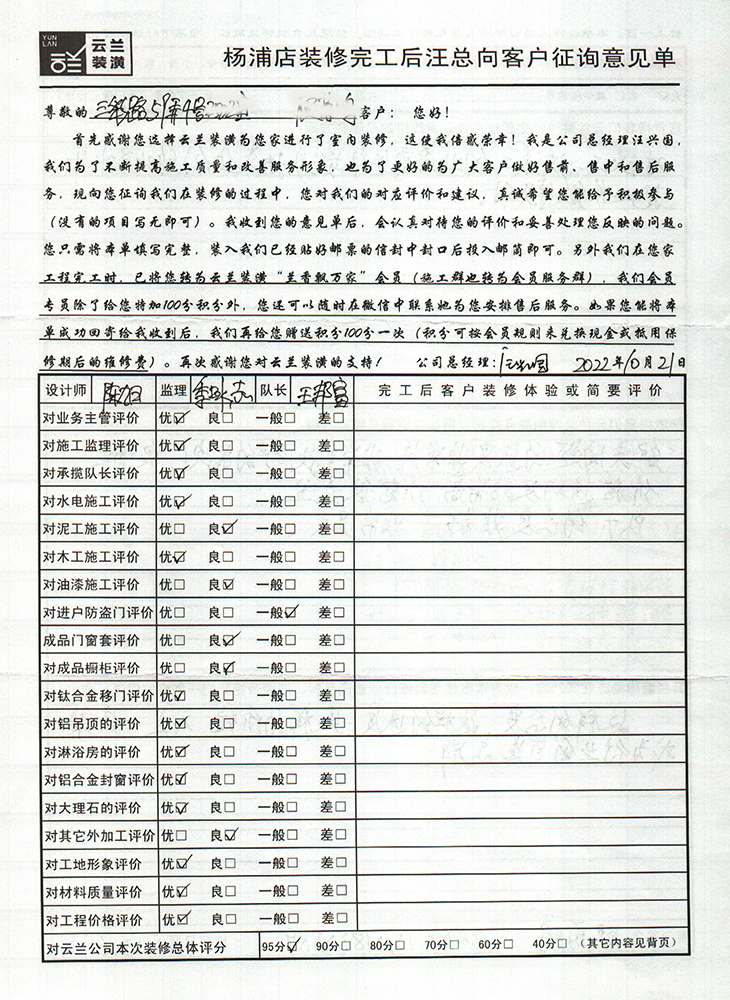 YUN LAN
云兰装潢
杨浦店装修完工后汪总向客户征询意见单
尊敬的 客户： 您好！
首先感谢您选择云兰装潢为您家进行了室内装修，这使我倍感荣幸！我是公司总经理汪兴国，
我们为了不断提高施工质量和改善服务形象，也为了更好的为广大客户做好售前、售中和售后服
务，现向您征询我们在装修的过程中，您对我们的对应评价和建议，真诚希望您能给予积极参与
（没有的项目写无即可）。我收到您的意见单后，会认真对待您的评价和妥善处理您反映的问题。
您只需将本单填写完整，装入我们已经贴好邮票的信封中封口后投入邮筒即可。另外我们在您家
工程完工时，已将您转为云兰装潢“兰香飘万家”会员（施工群也转为会员服务群），我们会员
专员除了给您特加100分积分外，您还可以随时在微信中联系她为您安排售后服务。如果您能将本
单成功回寄给我收到后，我们再给您赠送积分100分一次（积分可按会员规则来兑换现金或抵用保
修期后的维修费）。再次感谢您对云兰装潢的支持！ 公司总经理： 2022年10月21日
设计师 监理 队长 完工后客户装修体验或简要评价
对业务主管评价 优☑ 良□ 一般□ 差□
对施工监理评价 优☑ 良□ 一般□ 差□
对承揽队长评价 优☑ 良□ 一般□ 差□
对水电施工评价 优☑ 良□ 一般□ 差□
对泥工施工评价 优□ 良☑ 一般□ 差□
对木工施工评价 优☑ 良□ 一般□ 差□
对油漆施工评价 优□ 良☑ 一般□ 差□
对进户防盗门评价 优□ 良□ 一般☑ 差□
成品门窗套评价 优□ 良☑ 一般□ 差□
对成品橱柜评价 优□ 良☑ 一般□ 差□
对钛合金移门评价 优☑ 良□ 一般□ 差□
对铝吊顶的评价 优☑ 良□ 一般□ 差□
对淋浴房的评价 优☑ 良□ 一般□ 差□
对铝合金封窗评价 优☑ 良□ 一般□ 差□
对大理石的评价 优☑ 良□ 一般□ 差□
对其它外加工评价 优□ 良☑ 一般□ 差□
对工地形象评价 优☑ 良□ 一般□ 差□
对材料质量评价 优☑ 良□ 一般□ 差□
对工程价格评价 优☑ 良□ 一般□ 差□
对云兰公司本次装修总体评分 95分☑ 90分□ 80分□ 70分□ 60分□ 40分□ （其它内容见背页）